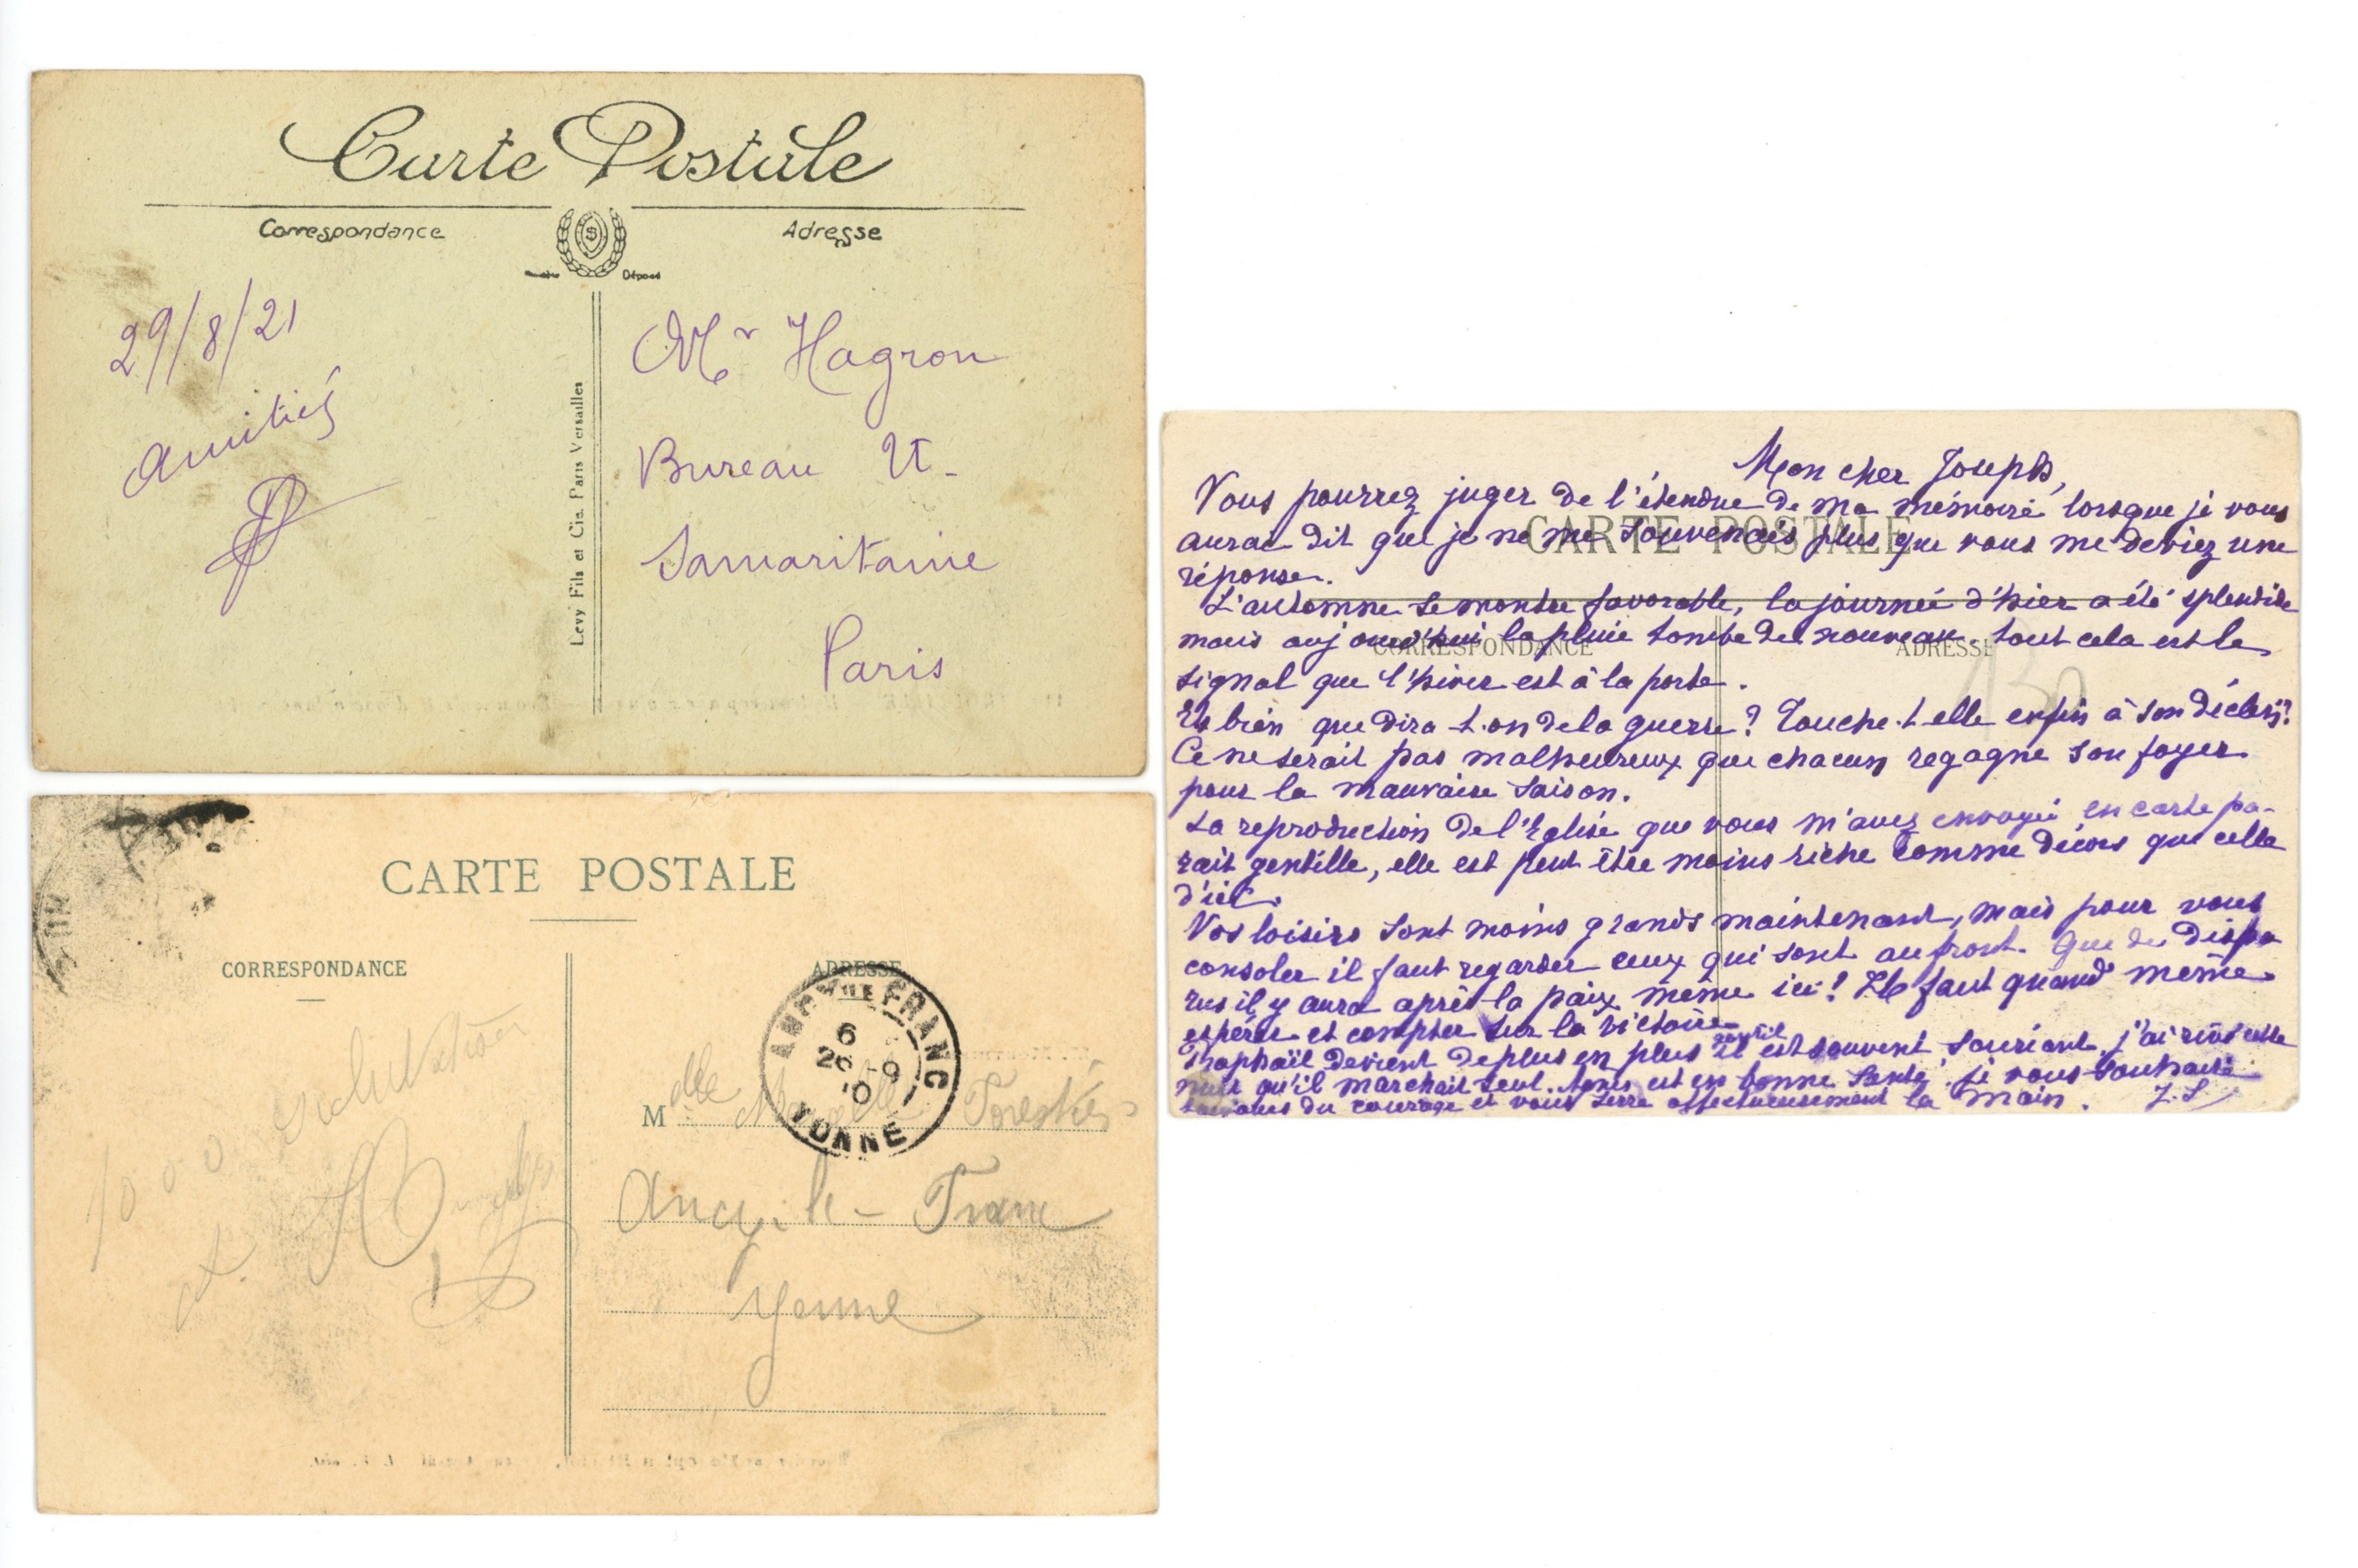 Carte Postale
Correspondance
Adresse
Déposé
29/8/21
Amitiés
Levy Fils et Cie. Paris Versailles
Mr Hagron
Bureau
Samaritaine
Paris
CARTE POSTALE
CORRESPONDANCE
ADRESSE
1000 salutations
M
delle Forestier
Ancy-le-Franc
Yonne
ANCY LE FRANC
6
26 -9
10
YONNE
CARTE POSTALE
CORRESPONDANCE
ADRESSE
130
Mon cher Joseph,
Vous pourrez juger de l'étendue de ma mémoire lorsque je vous
aurai dit que je ne me souvenais plus que vous me deviez une
réponse.
L'automne se montre favorable, la journée d'hier a été splendide
mais aujourd'hui la pluie tombe de nouveau. tout cela est le
signal que l'hiver est à la porte.
Eh bien que dira-t-on de la guerre? Touche-t-elle enfin à son déclin?
Ce ne serait pas malheureux que chacun regagne son foyer
pour la mauvaise saison.
La reproduction de l'Eglise que vous m'avez envoyée en carte pa-
rait gentille, elle est peut être moins riche comme décors que celle
d'ici.
Vos loisirs sont moins grands maintenant, mais pour vous
consoler il faut regarder ceux qui sont au front. Que de dispa
rus il y aura après la paix même ici! Il faut quand même
espérer et compter sur la victoire.
Raphaël devient de plus en plus gentil il est souvent souriant. j'ai rêvé cette
nuit qu'il marchait seul. est en bonne santé. je vous souhaite
toujours du courage et vous serre affectueusement la main. J.S